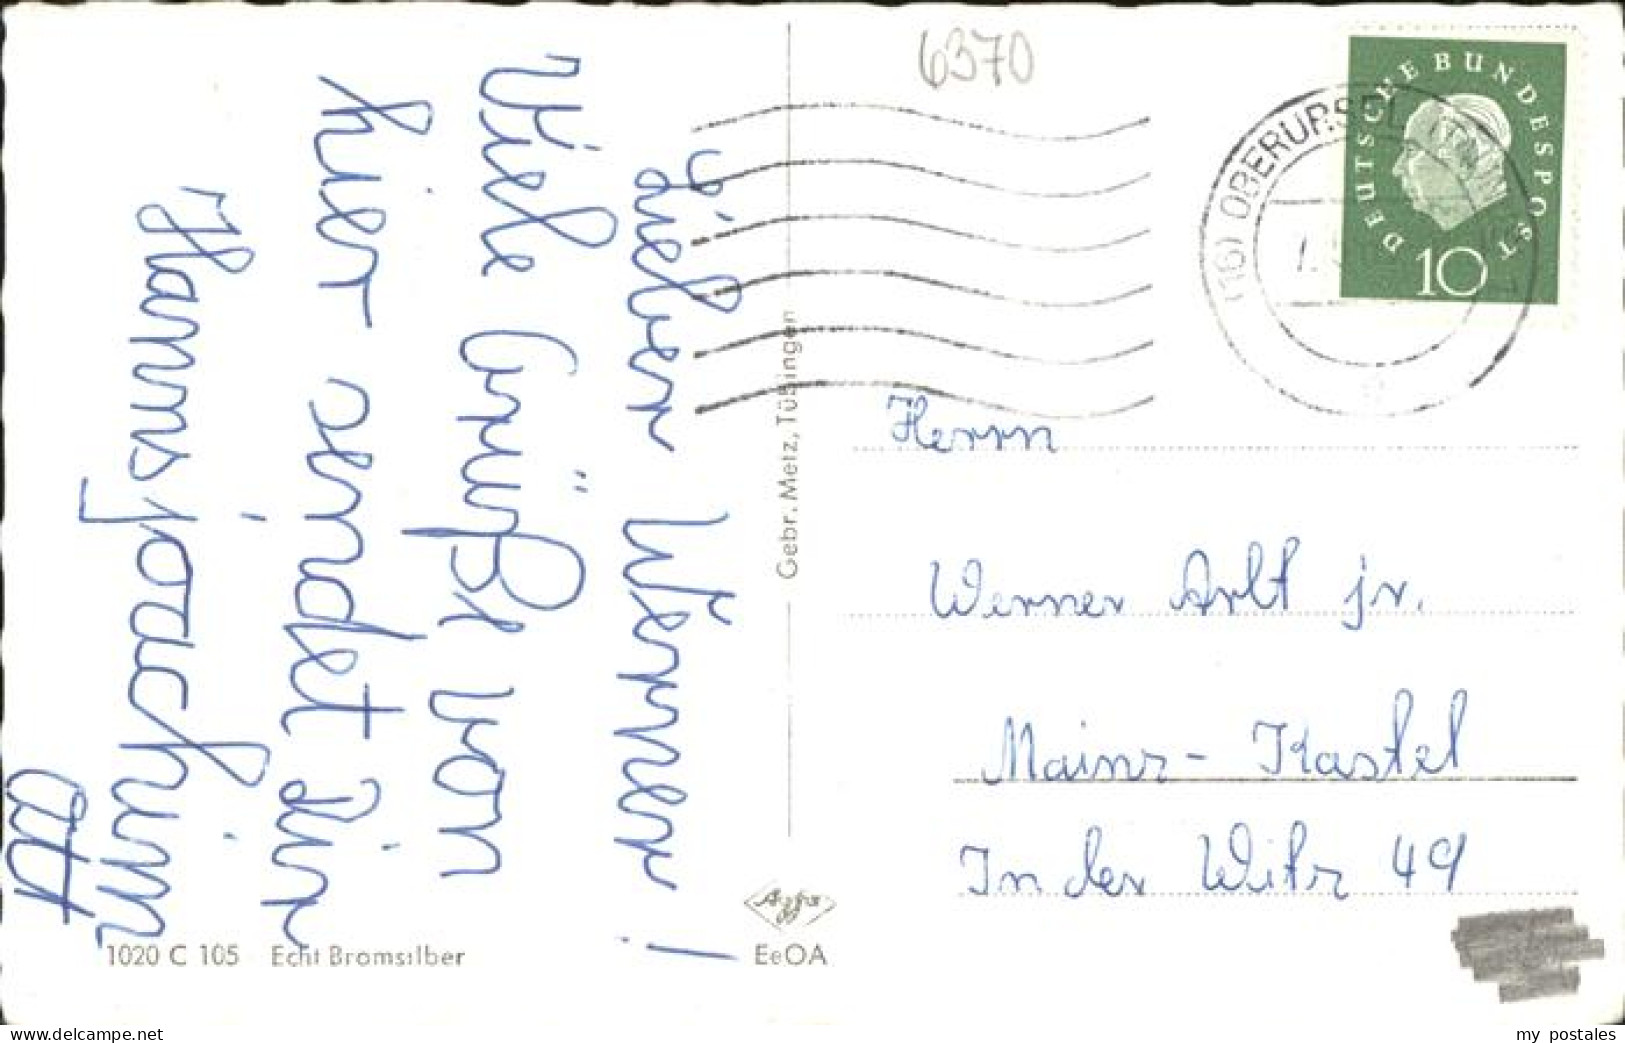 6370
DEUTSCHE BUNDESPOST
10
(16) OBERURSEL
Lieber Werner!
Viele Grüße von
hier sendet Dir
Hannsjoachim
Ott
Herrn
Werner Arlt jr.
Mainz-Kastel
In der Witz 49
Gebr. Metz, Tübingen
1020 C 105 Echt Bromsilber
Agfa
EeOA
www.delcampe.net
my postales